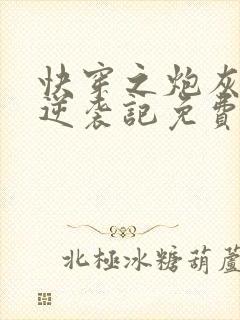 快穿之炮灰
逆袭記免費
北極冰糖葫蘆